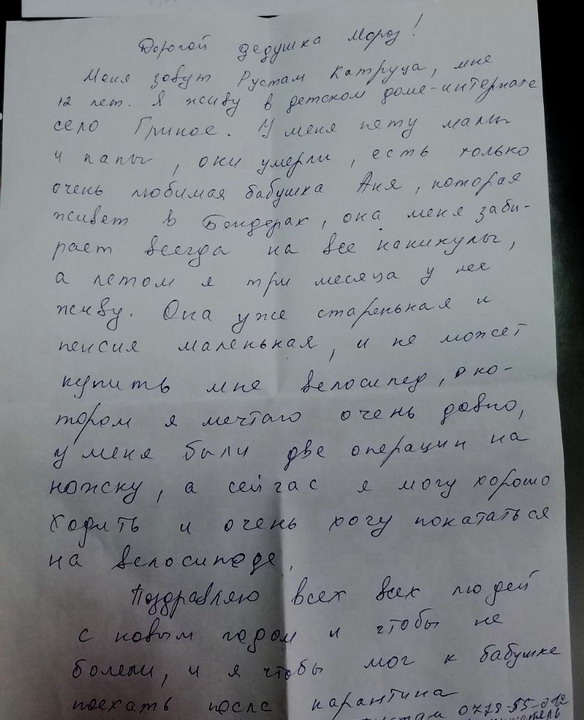 Дорогой дедушка Мороз!
Меня зовут Рустам Катруца, мне
12 лет. Я живу в детском доме-интернате
село Гриное. У меня нету мамы
и папы, они умерли, есть только
очень любимая бабушка Аня, которая
живёт в Бендерах, она меня заби-
рает всегда на все каникулы,
а летом я три месяца у нее
живу. Она уже старенькая и
пенсия маленькая, и не может
купить мне велосипед, о ко-
тором я мечтаю очень давно,
у меня были две операции на
ножку, а сейчас я могу хорошо
ходить и очень хочу покататься
на велосипеде.
Поздравляю всех всех людей
с новым годом и чтобы не
болели, и я чтобы мог к бабушке
поехать после карантина